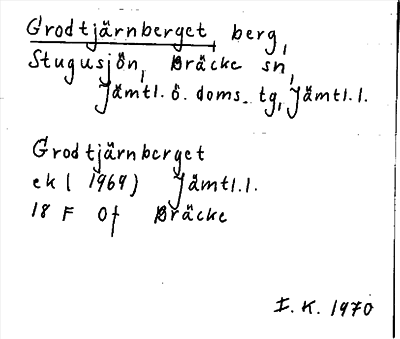 Grodtjärnberget, berg,
Stugusjön, Bräcke sn,
Jämtl. ö. doms. tg, Jämtl. l.
Grodtjärnberget
ek ( 1969) Jämtl. l.
18 F Of Bräcke
I. K. 1970